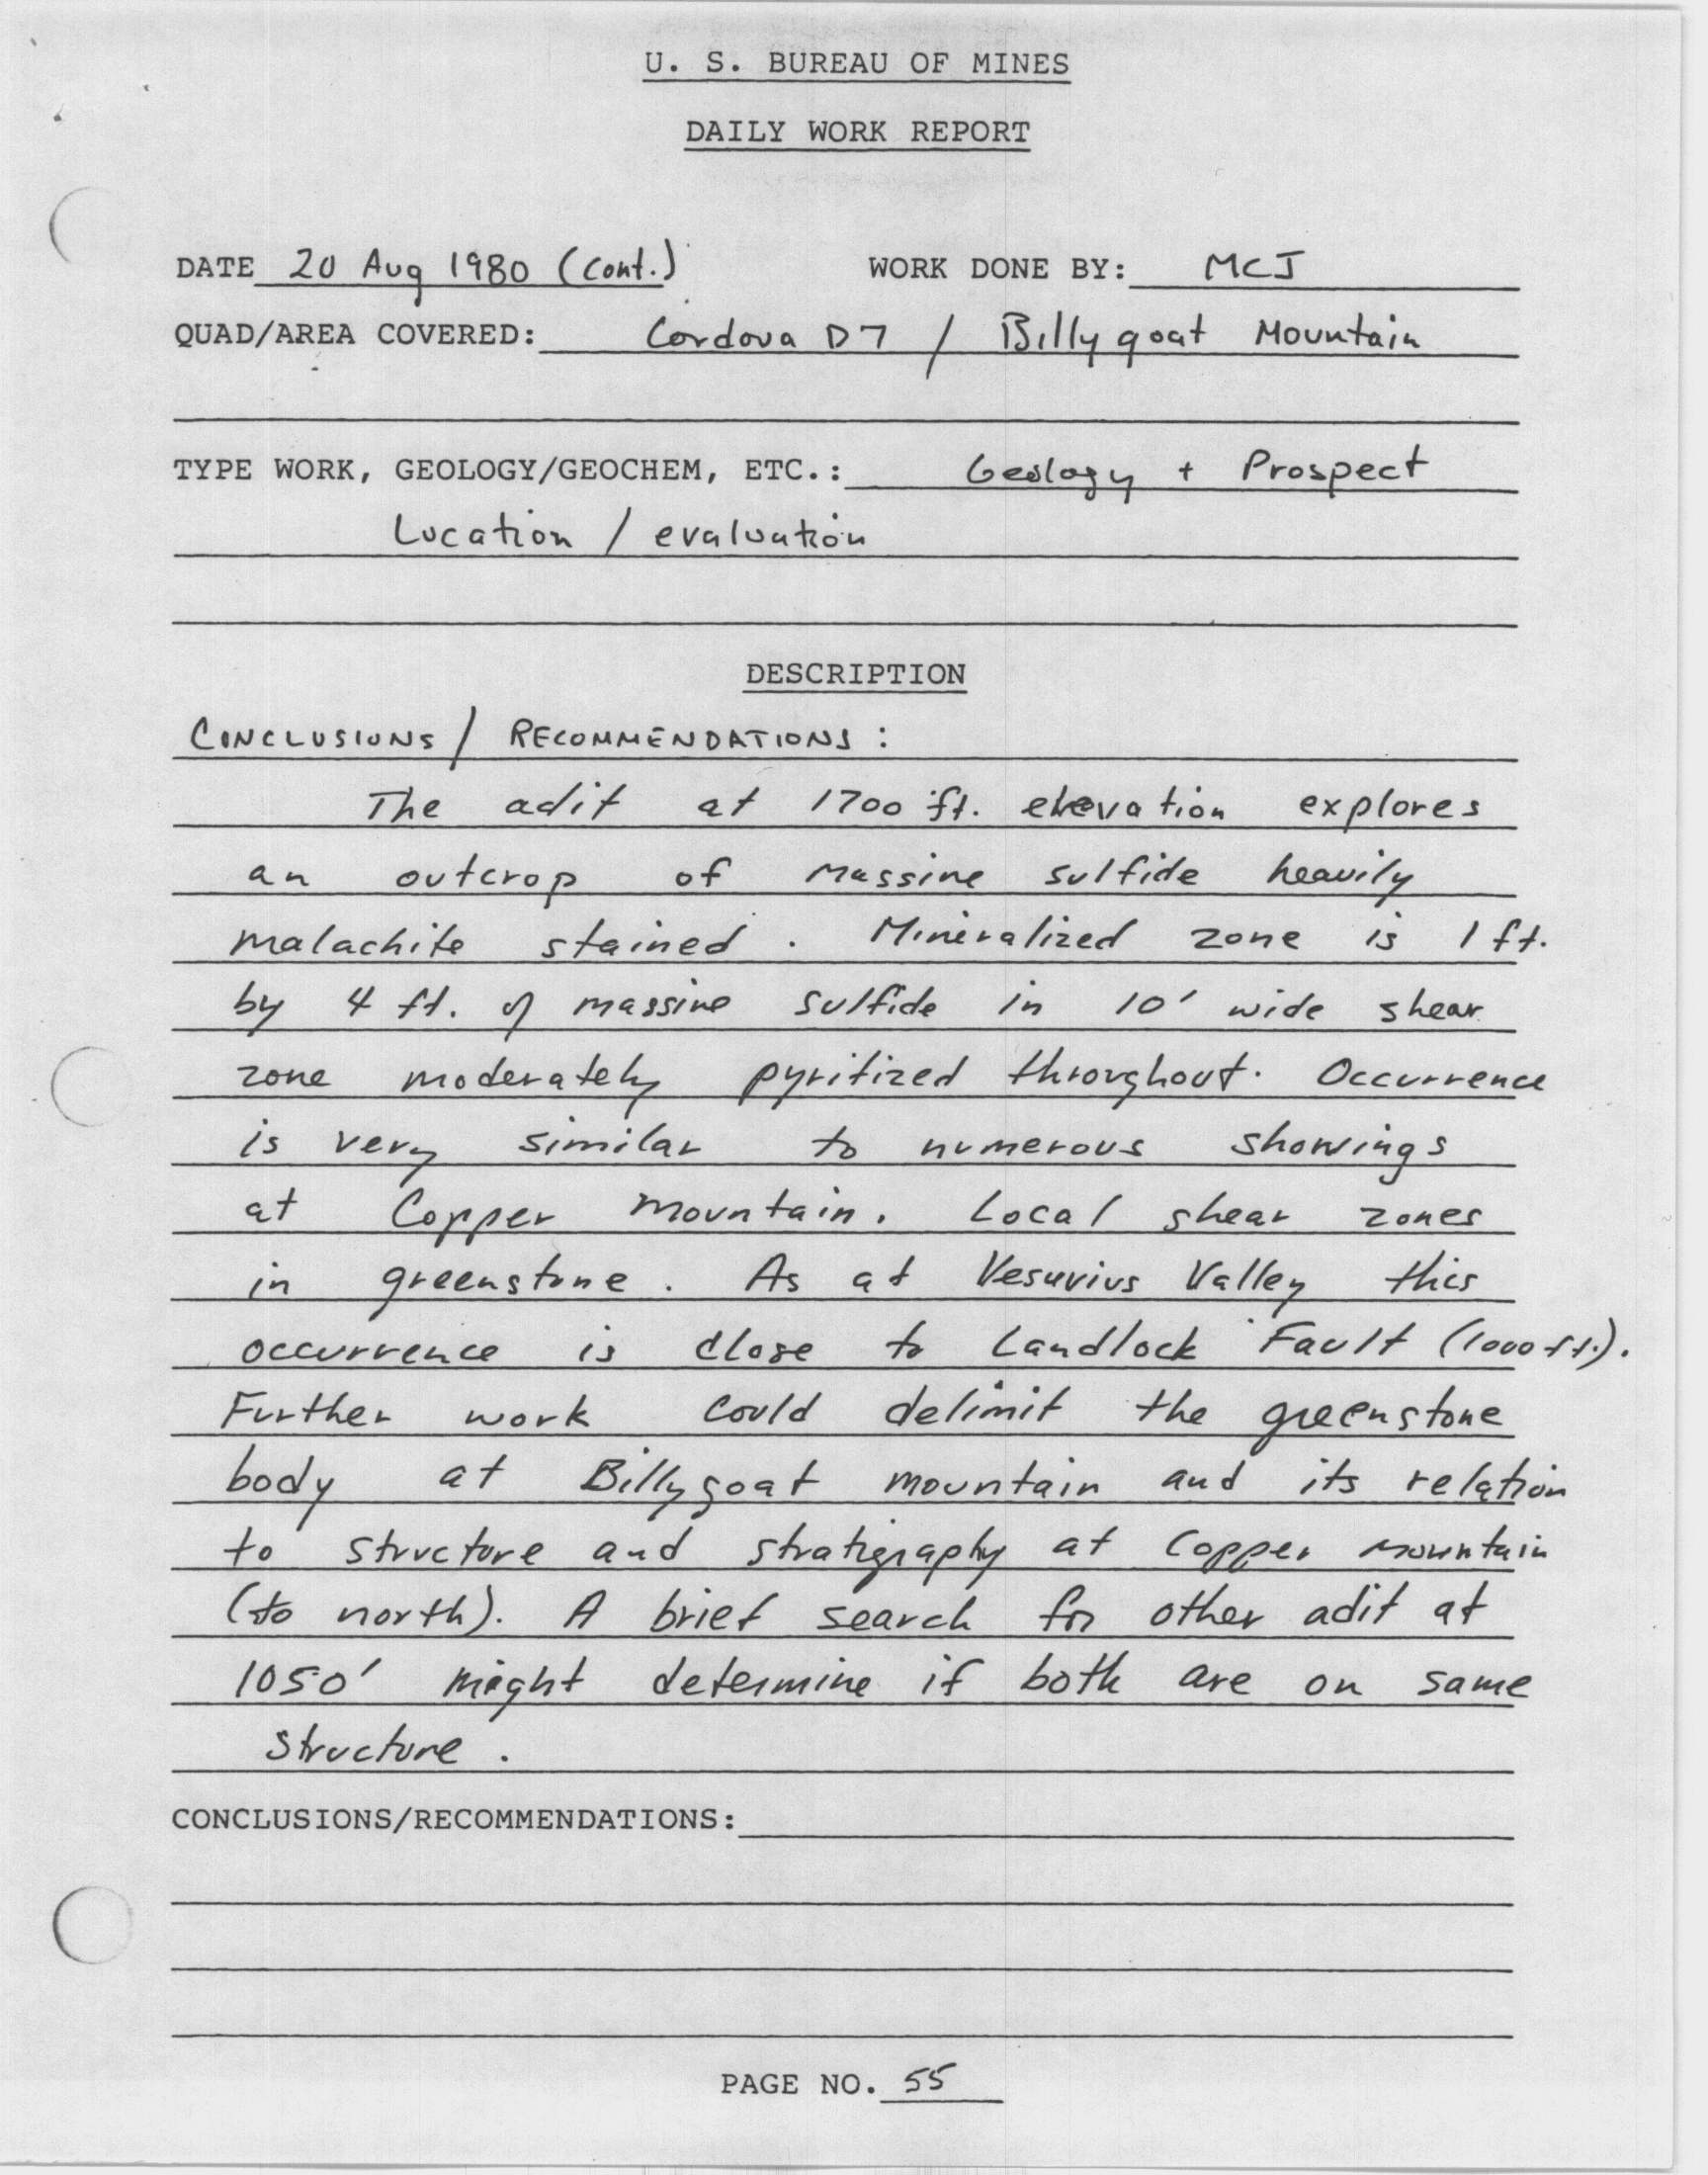 U. S. BUREAU OF MINES
DAILY WORK REPORT
DATE 20 Aug 1980 (cont.) WORK DONE BY: MCJ
QUAD/AREA COVERED: Cordova D7 / Billygoat Mountain
TYPE WORK, GEOLOGY/GEOCHEM, ETC.: Geology + Prospect
Location / evaluation
DESCRIPTION
CONCLUSIONS / RECOMMENDATIONS :
The adit at 1700 ft. elevation explores
an outcrop of massive sulfide heavily
malachite stained . Mineralized zone is 1 ft.
by 4 ft. of massive sulfide in 10' wide shear
zone moderately pyritized throughout. Occurrence
is very similar to numerous showings
at Copper Mountain. Local shear zones
in greenstone . As at Vesuvius Valley this
occurrence is close to Landlock Fault (1000 ft.).
Further work could delimit the greenstone
body at Billygoat mountain and its relation
to structure and stratigraphy at Copper mountain
(to north). A brief search for other adit at
1050' might determine if both are on same
structure .
CONCLUSIONS/RECOMMENDATIONS:
PAGE NO. 55